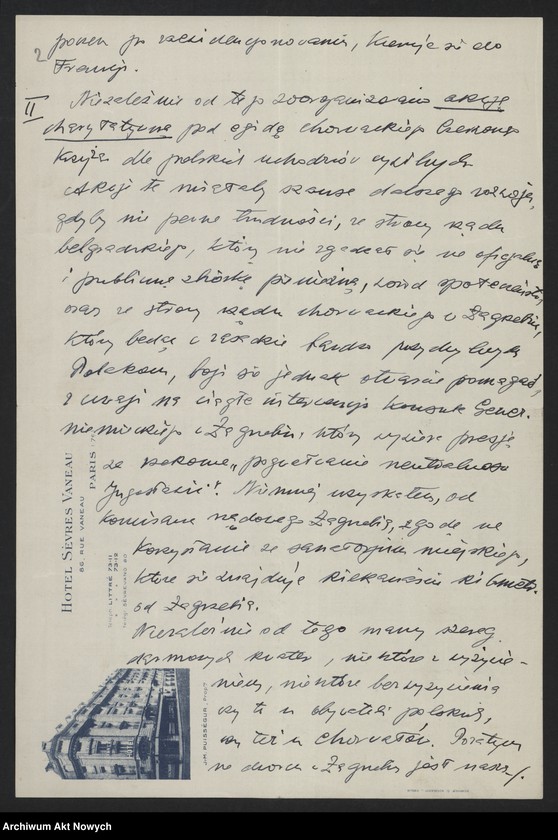 2
po za ewidencjonowaniu, kieruje się do
Francji.
II
Niezależnie od tego zorganizowano akcję
charytatywną pod egidą chorwackiego Czerwonego
Krzyża dla polskich uchodźców cywilnych
Akcja ta miałaby szanse dalszego rozwoju,
gdyby nie pewne trudności, ze strony rządu
belgradzkiego, który nie zgadzał się na oficjalną
i publiczną zbiórkę pieniężną, wśród społeczeństwa,
oraz ze strony rządu chorwackiego w Zagrzebiu,
który będąc bardzo przychylnym
Polakom, boi się jednak otwarcie pomagać,
z uwagi na ciągłe interwencje Konsula Gener.
niemieckiego w Zagrzebiu, który wywiera presję
za rzekome „pogwałcanie neutralności
Jugosławii". Niemniej uzyskałem, od
komisarza rządowego Zagrzebia, zgodę na
korzystanie ze sanatorjum miejskiego,
które się znajduje kilkanaście kilometr.
od Zagrzebia.
Niezależnie od tego mamy szereg
darmowych kwater, niektóre z wyżywie-
niem, niektóre bez wyżywienia
czy to u obywateli polskich,
czy też u Chorwatów. Pozatym
na dworcu w Zagrzebiu jest nasz
HOTEL SÈVRES VANEAU
86, RUE VANEAU
PARIS
LITTRÉ 73-11
73-12
J.-M. PUISSÉGUR, Propr.
Archiwum Akt Nowych